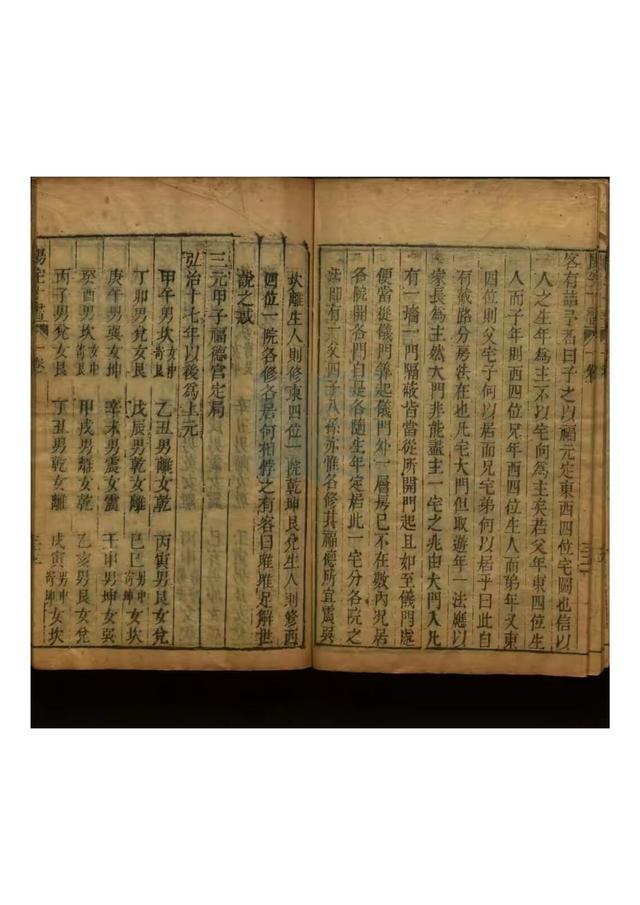 客有詰予者曰子之以福元定東西四位宅圖也信以
一人之生年為主不以宅向為主矣若父年東四位生
人而子年則西四位兄年西四位生人而弟年又東
四位則父宅子何以居而兄宅弟何以居乎曰此自
有截路分房法在也凡宅大門但取遊年一法應以
家長為主然大門非能盡主一宅之兆由大門入凡
有一墻一門隔蔽皆當從所開門起且如至儀門處
便當從儀門筭起儀門外一層房已不在數內況居
各院開各門自是各隨生年定居此一宅分各院之
法即有一父四子八孫亦惟各修其福德所宜震巽
坎離生人則修東四位一院乾坤艮兌生人則修西
四位一院各修各居何相悖之有客曰唯唯足解世
說之惑
三元甲子福德宮定局
弘治十七年以後為上元
甲午男坎女坤寄艮 乙丑男離女乾 丙寅男艮女兌
丁卯男兌女艮 戊辰男乾女離 己巳男中寄坤女坎
庚午男巽女坤 辛未男震女震 壬申男坤女巽
癸酉男坎女中寄艮 甲戌男離女乾 乙亥男艮女兌
丙子男兌女艮 丁丑男乾女離 戊寅男中寄坤女坎
陽宅 一卷